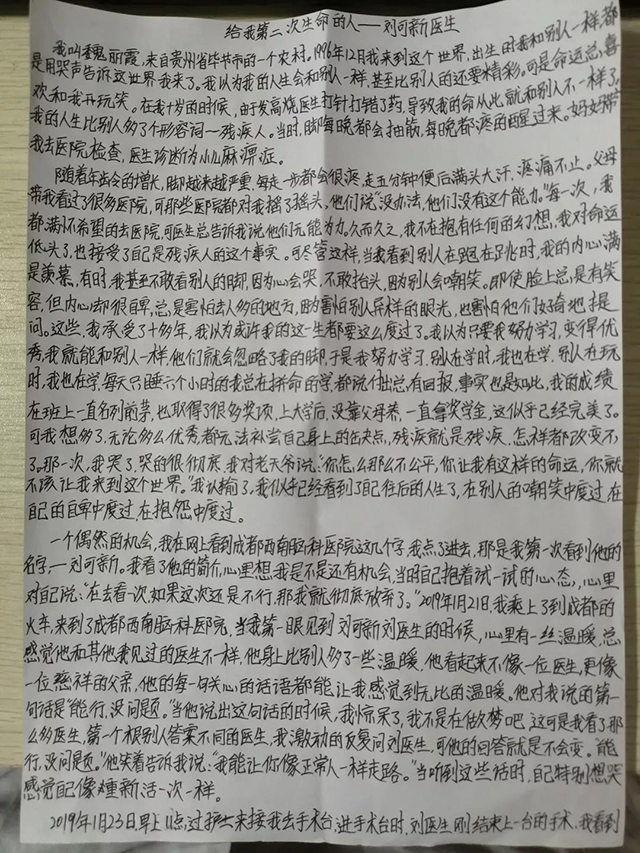 给我第二次生命的人——刘可新医生
我叫魏丽霞,来自贵州省毕节市的一个农村。1996年12月我来到这个世界,出生时我和别人一样,都
是用哭声告诉这世界我来了。我以为我的人生会和别人一样,甚至比别人的还要精彩。可是命运总喜
欢和我开玩笑。在我十岁的时候,由于发高烧医生打针打错了药,导致我的命从此就和别人不一样了。
我的人生比别人多了个形容词—残疾人。当时,脚每晚都会抽筋,每晚都疼的醒过来。妈妈带
我去医院检查,医生诊断为小儿麻痹症。
随着年龄的增长,脚越来越严重,每走一步都会很疼,走五分钟便后满头大汗,疼痛不止。父母
带我看过了很多医院,可那些医院都对我摇了摇头,他们说“没办法,他们没有这个能力。”每一次,我
都满怀希望的去医院,可医生总告诉我说他们无能为力。久而久之,我不在抱有任何的幻想,我对命运
低头了,也接受了自己是残疾人的这个事实。可尽管这样,当我看到别人在跑在跳时,我的内心满
是羡慕,有时,我甚至不敢看别人的脚,因为心会哭,不敢抬头,因为别人会嘲笑。即使脸上总是有笑
容,但内心却很自卑,总是害怕去人多的地方,因为害怕别人异样的眼光,也害怕他们好奇地提
问。这些,我承受了十多年,我以为或许我的这一生都要这么度过了。我以为只要我努力学习,变得优
秀,我就能和别人一样,他们就会忽略了我的脚,于是我努力学习,别人在学时,我也在学,别人在玩
时,我也在学,每天只睡六个小时的我总在拼命的学,都说付出总有回报,事实也是如此,我的成绩
在班上一直名列前茅,也取得了很多奖项,上大学后,没靠父母养,一直拿奖学金,这似乎已经完美了。
可我想多了,无论多么优秀都无法补尝自己身上的缺点,残疾就是残疾,怎样都改变不
了。那一次,我哭了,哭的很彻底,我对老天爷说:“你怎么那么不公平,你让我有这样的命运,你就
不该让我来到这个世界。”我认输了,我似乎已经看到了自己往后的人生了,在别人的嘲笑中度过,在
自己的自卑中度过,在抱怨中度过。
一个偶然的机会,我在网上看到成都西南脑科医院这几个字,我点了进去,那是我第一次看到他的
名字—刘可新。我看了他的简介,心里想,我是不是还有机会,当时自己抱着试一试的心态,心里
对自己说:“在去看一次如果这次还是不行,那我就彻底放弃了。”2019年1月21日,我乘上了到成都的
火车,来到了成都西南脑科医院,当我第一眼见到刘可新刘医生的时候,心里有一丝温暖,总
感觉他和其他我见过的医生不一样,他身上比别人多了一些温暖,他看起来不像一位医生,更像
一位慈祥的父亲,他的每一句关心的话语都能让我感觉到无比的温暖。他对我说的第一
句话是“能行,没问题。”当他说出这句话的时候,我惊呆了,我不是在做梦吧,这可是我看了那
么多医生,第一个跟别人答案不同的医生,我激动的反复问刘医生,可他的回答就是不会变。“能
行,没问题。”他笑着告诉我说:“我能让你像正常人一样走路。”当听到这些话时,自己特别想哭
感觉自己像重新活一次一样。
2019年1月23日,早上11点,过护士来接我去手术台,进手术台时,刘医生刚结束上一台的手术,我看到